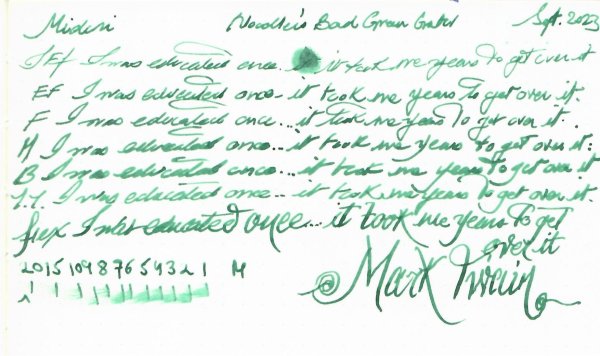 Midori Noodler's Bad Green Gator Sept. 2023
EEF I was educated once... it took me years to get over it
EF I was educated once... it took me years to get over it.
F I was educated once... it took me years to get over it.
M I was educated once... it took me years to get over it.
B I was educated once... it took me years to get over it
1.1 I was educated once... it took me years to get over it.
flex I was educated once... it took me years to get
over it
20 15 10 9 8 7 6 5 4 3 2 1 M
Mark Twain